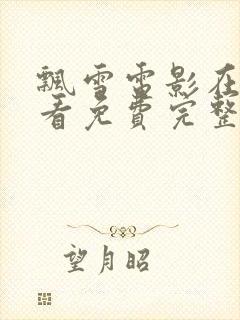 飘雪雷影在
看免费完整
望月昭